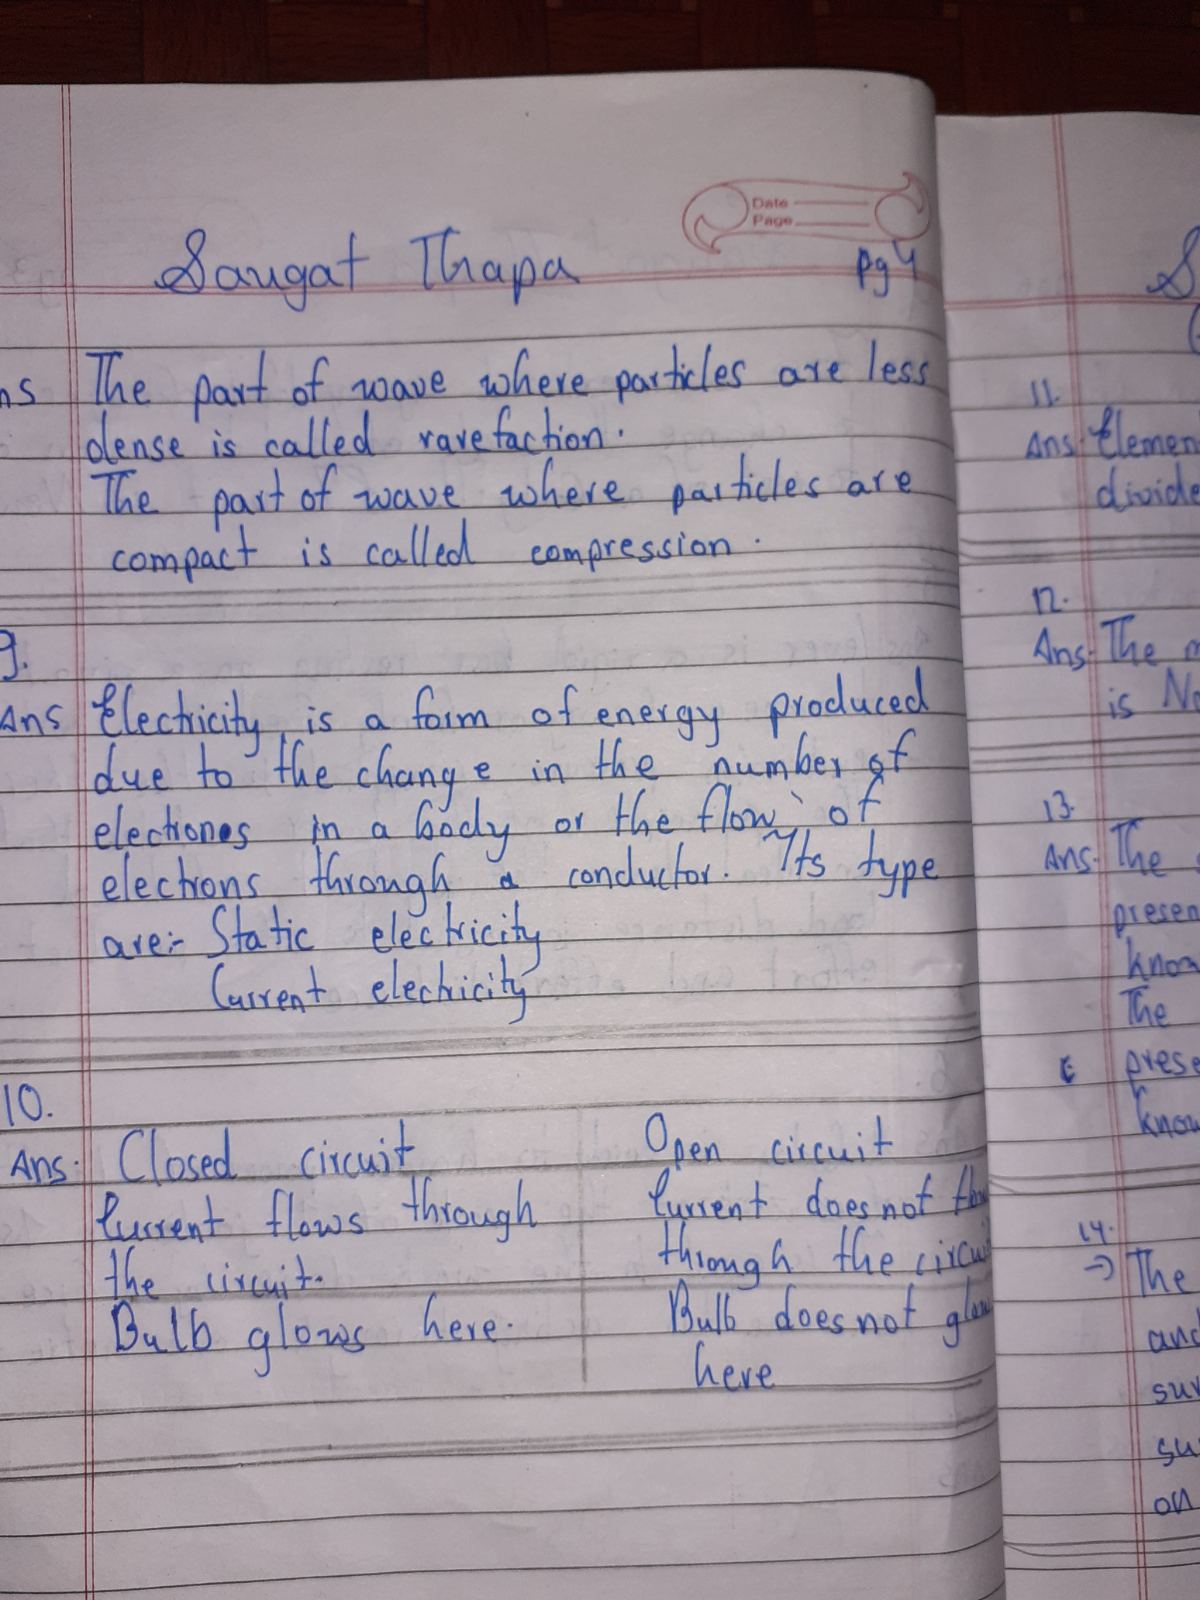 Date
Page
Saugat Thapa
pg 4
ns The part of wave where particles are less
dense is called rarefaction.
The part of wave where particles are
compact is called compression.
9.
Ans Electricity is a form of energy produced
due to the change in the number of
electrones in a body or the flow of
electrons through a conductor. Its type
are:- Static electricity
Current electricity
10.
Ans. Closed circuit
Current flows through
the circuit.
Bulb glows here.
Open circuit
Current does not flow
through the circui
Bulb does not glow
here
11.
Ans. Elemen
divide
12.
Ans. The
is
13.
Ans. The
presen
know
The
prese
know
14.
→ The
and
su
on